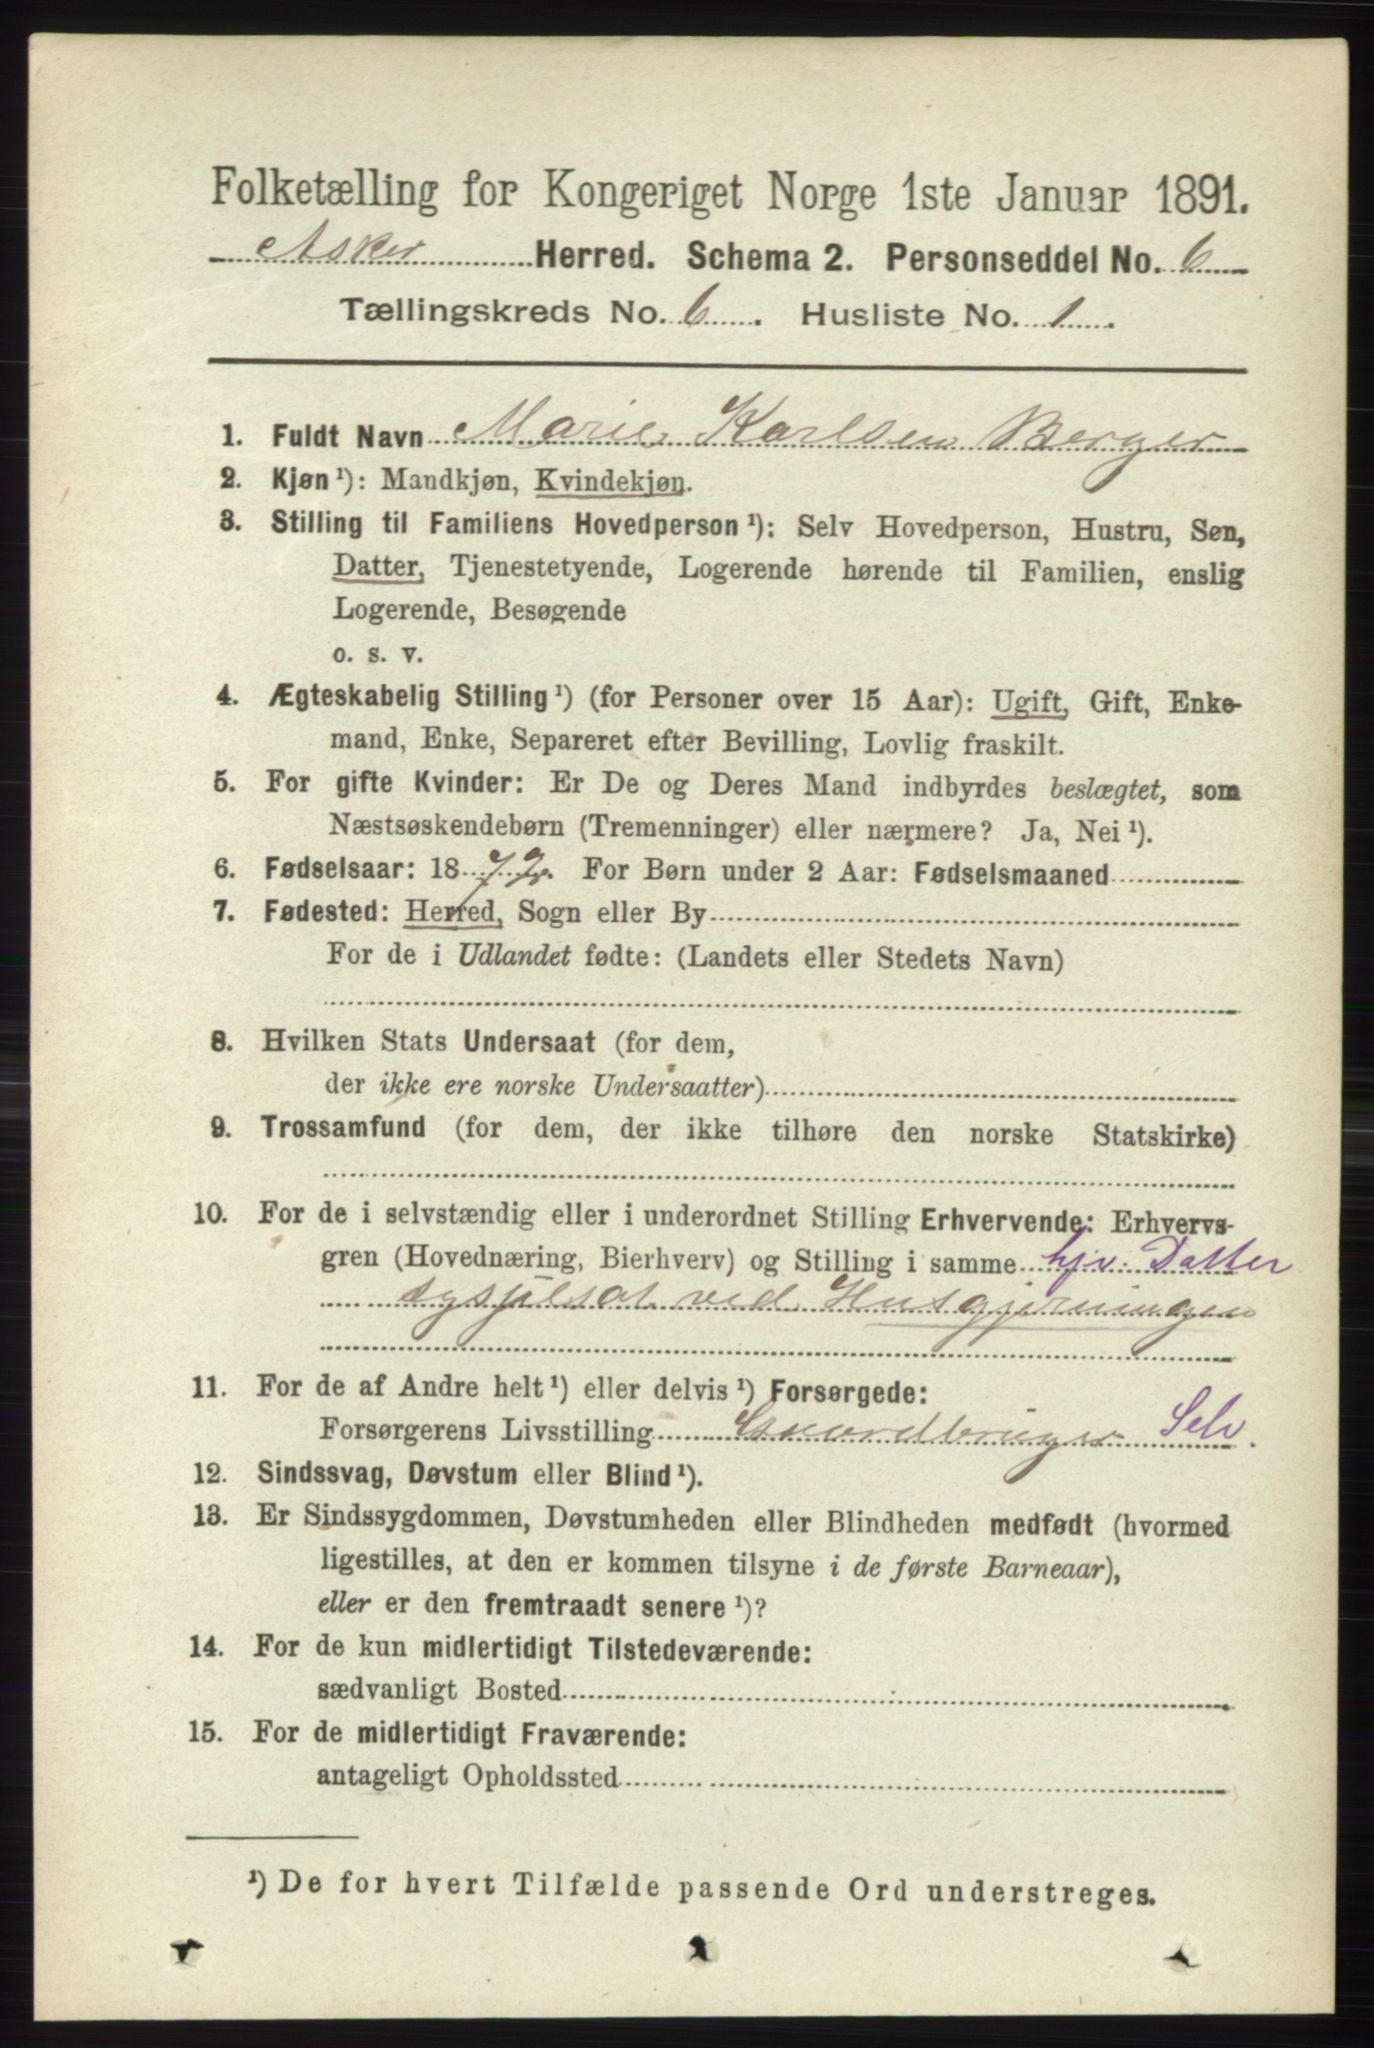 Folketælling for Kongeriget Norge 1ste Januar 1891.
Asker Herred. Schema 2. Personseddel No. 6
Tællingskreds No. 6. Husliste No. 1.
1. Fuldt Navn Marie Karlsen Berger
2. Kjøn ¹): Mandkjøn, Kvindekjøn.
3. Stilling til Familiens Hovedperson ¹): Selv Hovedperson, Hustru, Søn,
Datter, Tjenestetyende, Logerende hørende til Familien, enslig
Logerende, Besøgende
o. s. v.
4. Ægteskabelig Stilling ¹) (for Personer over 15 Aar): Ugift, Gift, Enke-
mand, Enke, Separeret efter Bevilling, Lovlig fraskilt.
5. For gifte Kvinder: Er De og Deres Mand indbyrdes beslægtet, som
Næstsøskendebørn (Tremenninger) eller nærmere? Ja, Nei ¹).
6. Fødselsaar: 1872. For Børn under 2 Aar: Fødselsmaaned
7. Fødested: Herred, Sogn eller By
For de i Udlandet fødte: (Landets eller Stedets Navn)
8. Hvilken Stats Undersaat (for dem,
der ikke ere norske Undersaatter)
9. Trossamfund (for dem, der ikke tilhøre den norske Statskirke)
10. For de i selvstændig eller i underordnet Stilling Erhvervende: Erhvervs-
gren (Hovednæring, Bierhverv) og Stilling i samme hjv. Datter
sysselsat ved Husgjerningen
11. For de af Andre helt ¹) eller delvis ¹) Forsørgede:
Forsørgerens Livsstilling Gaardbruger Selv.
12. Sindssvag, Døvstum eller Blind ¹).
13. Er Sindssygdommen, Døvstumheden eller Blindheden medfødt (hvormed
ligestilles, at den er kommen tilsyne i de første Barneaar),
eller er den fremtraadt senere ¹)?
14. For de kun midlertidigt Tilstedeværende:
sædvanligt Bosted
15. For de midlertidigt Fraværende:
antageligt Opholdssted
¹) De for hvert Tilfælde passende Ord understreges.